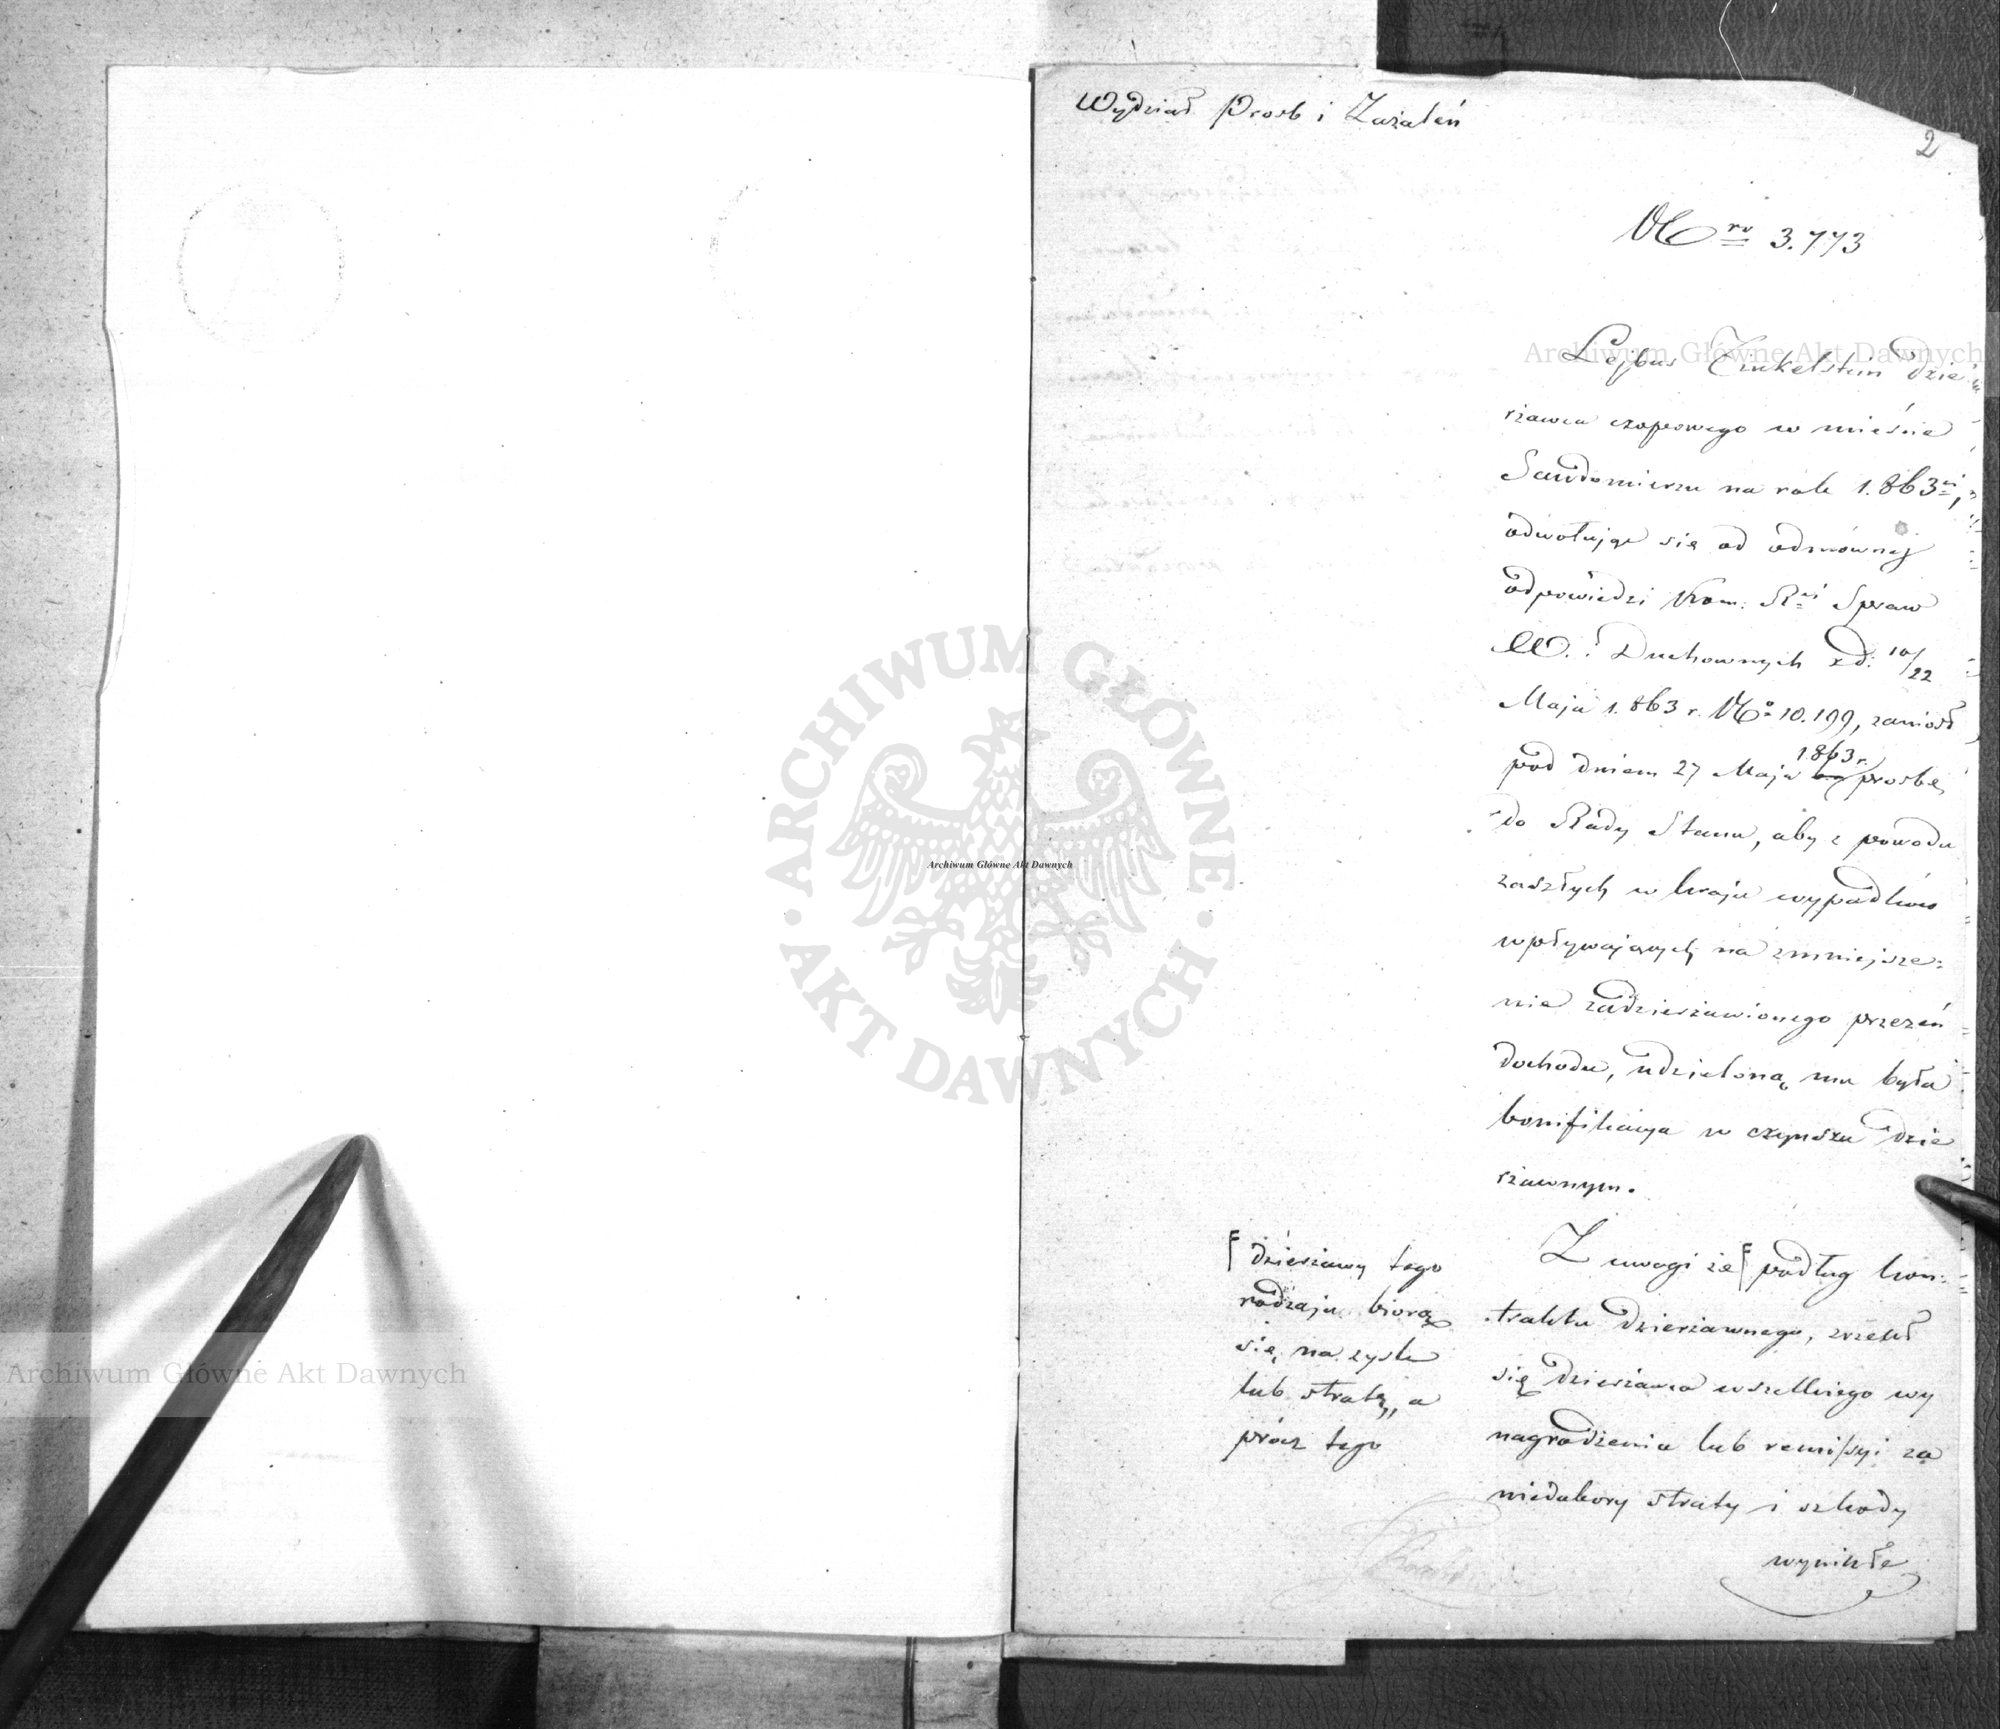 Wydział Prosb i Zażaleń
2
Nro 3.773
Lejbus Finkelstein dzie
rżawca czopowego w mieście
Sandomierzu na rok 1.863ci,
odwołując się od odmównej
odpowiedzi Kom: R.ei Spraw
W. i Duchownych z d: 10/22
Maja 1.863 r. No 10.199, zaniosł
pod dniem 27 Maja 1863 r. prosbę
do Rady Stanu, aby z powodu
zaszłych w kraju wypadków
wpływających na zmniejsze=
nie zadzierżawionego przezeń
dochodu, udzieloną mu była
bonifikacya w czynszu dzie
rżawnym.
Z uwagi że podług kon=
traktu dzierżawnego, zrzekł
się dzierżawca wszelkiego wy
nagrodzenia lub remissyi za
niedobory straty i szkody
wynikłe
dzierżawy tego
rodzaju biorą
się na zysk
lub stratę, a
prócz tego
Archiwum Główne Akt Dawnych
Archiwum Główne Akt Dawnych
Archiwum Główne Akt Dawnych
ARCHIWUM GŁÓWNE
AKT DAWNYCH